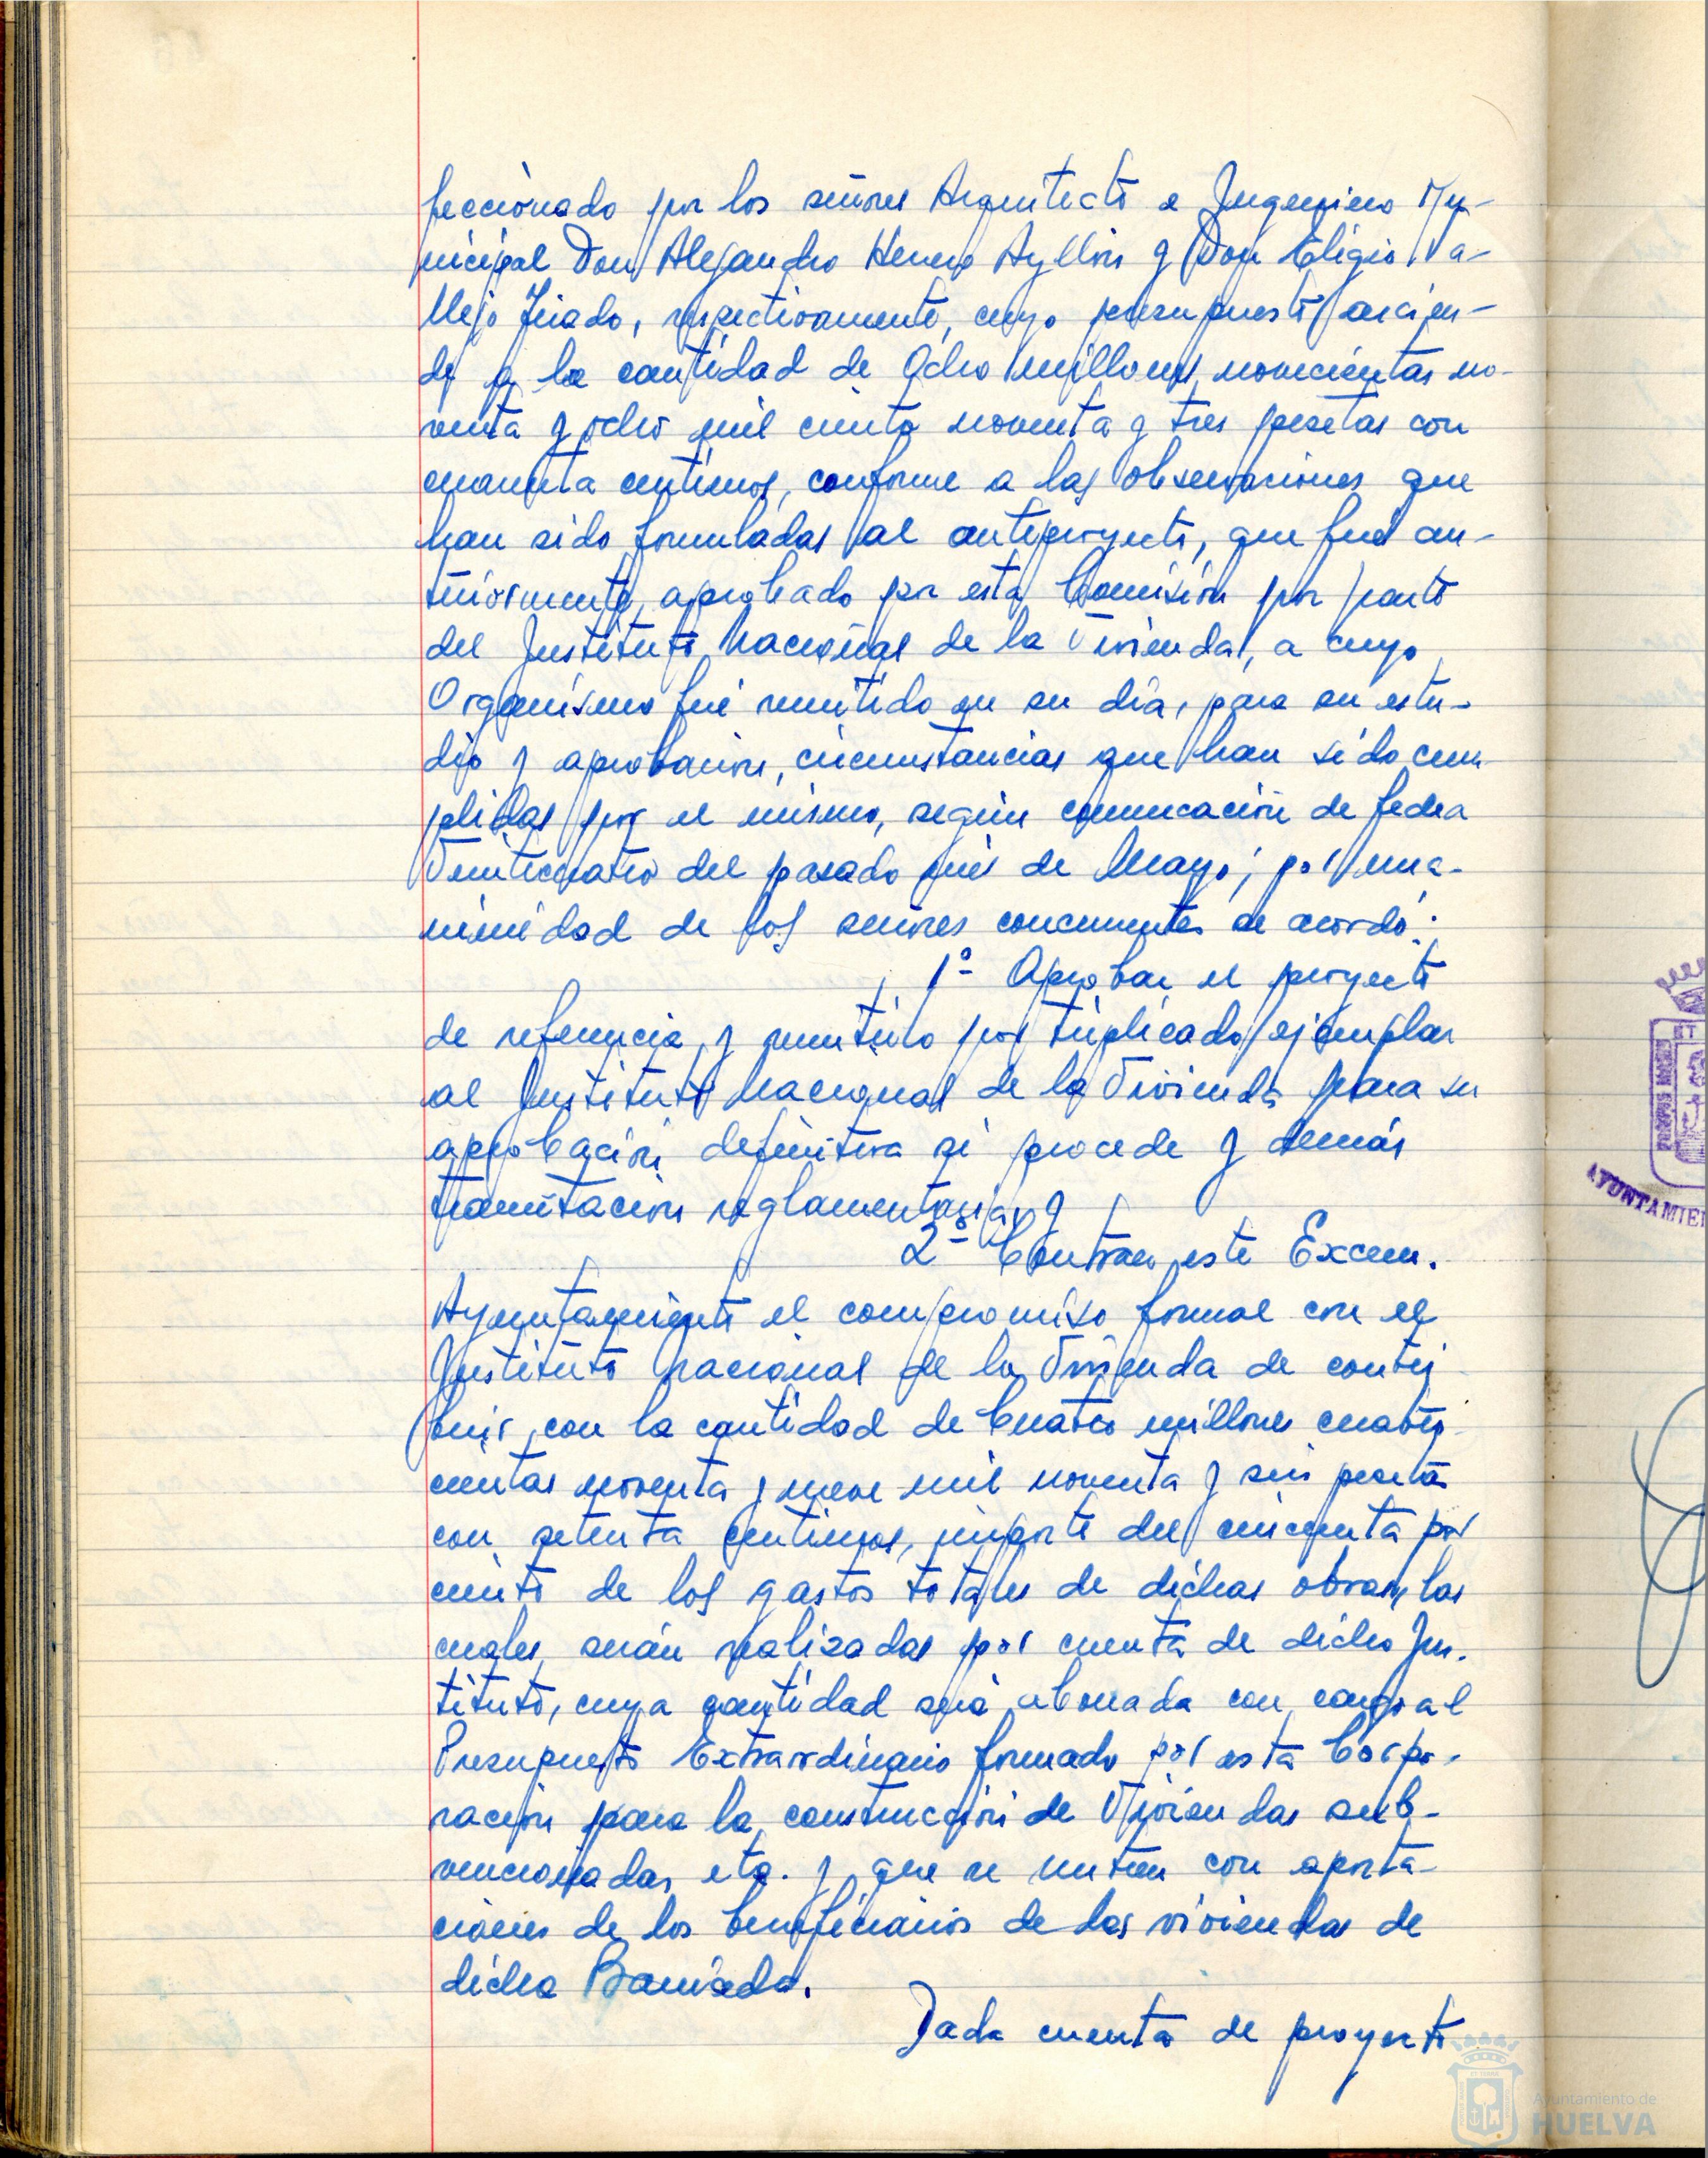 feccionado por los señores Arquitecto e Ingeniero Mu-
nicipal Don Alejandro Herrero Ayllón y Don Eligio Va-
llejo Tirado, respectivamente, cuyo presupuesto ascien-
de a la cantidad de Ocho millones novecientas no-
venta y ocho mil ciento noventa y tres pesetas con
cuarenta centimos, conforme a las observaciones que
han sido formuladas al anteproyecto, que fué an-
teriormente aprobado por esta Comisión por parte
del Instituto Nacional de la Vivienda, a cuyo
Organismo fué remitido en su día, para su estu-
dio y aprobación, circunstancias que han sido cum
plidas por el mismo, según comunicación de fecha
Veinticuatro del pasado mes de Mayo; por una-
nimidad de los señores concurrentes se acordó:
1º- Aprobar el proyecto
de referencia, y remitirlo por triplicado ejemplar
al Instituto Nacional de la Vivienda para su
aprobación definitiva si procede y demás
tramitación reglamentaria, y
2º- Contraer este Excem.
Ayuntamiento el compromiso formal con el
Instituto Nacional de la Vivienda de contri
buir, con la cantidad de Cuatro millones cuatro-
cientas noventa y nueve mil noventa y seis pesetas
con setenta centimos, importe del cincuenta por
ciento de los gastos totales de dichas obras, las
cuales serán realizadas por cuenta de dicho Ins-
tituto, cuya cantidad será abonada con cargo al
Presupuesto Extraordinario formado por esta Corpo-
ración para la construcción de Viviendas sub-
vencionadas, etc. y que se nutren con aporta-
ciones de los beneficiarios de las viviendas de
dicha Barriada.
Dada cuenta de proyecto
AYUNTAMIE
Ayuntamiento de
HUELVA